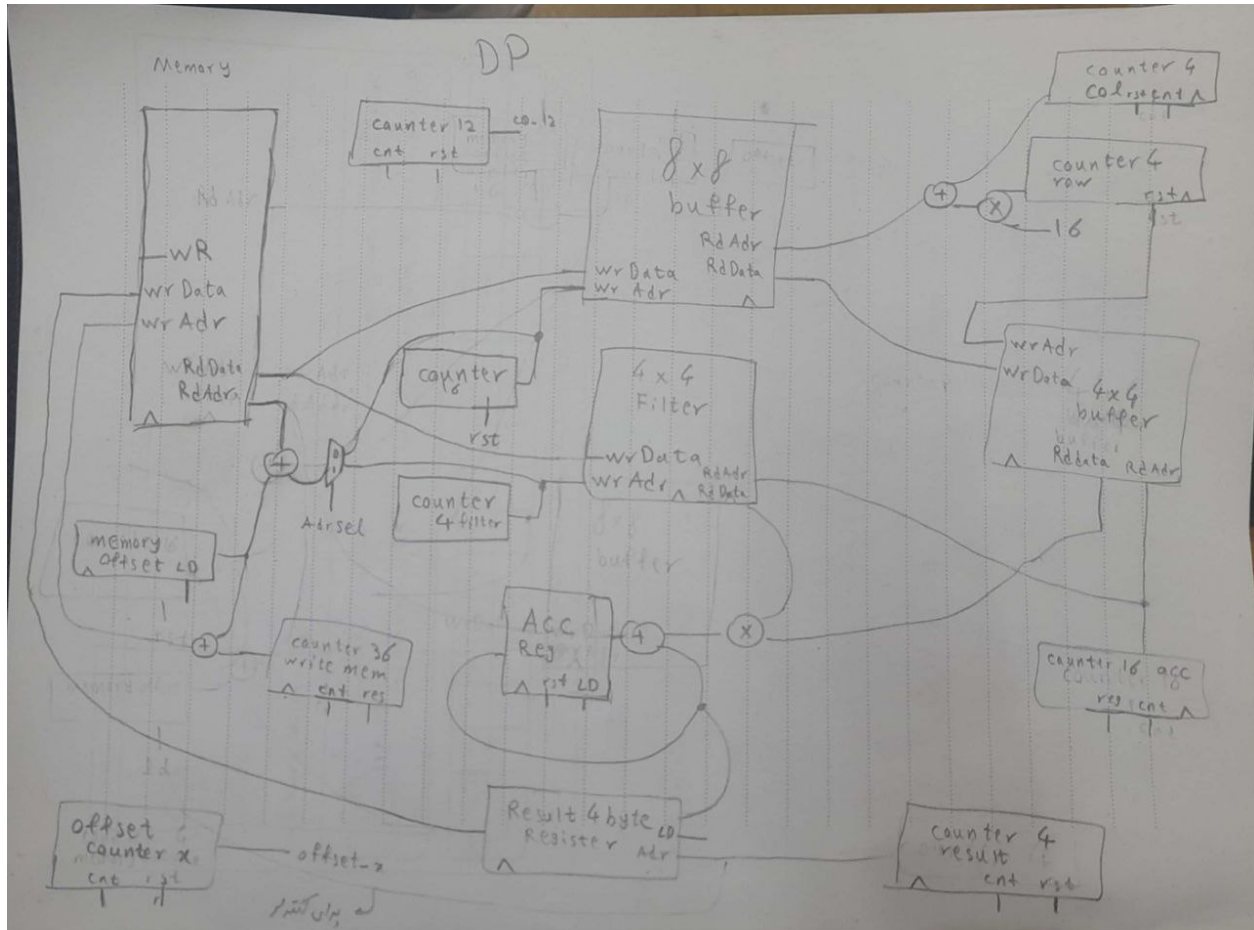 DP
Memory
WR
Wr Data
Wr Adr
Rd Data
Rd Adr
counter 12
cnt rst
co_12
8 x 8
buffer
Rd Adr
Rd Data
Wr Data
Wr Adr
counter 4
Col rst cnt
counter 4
row
rst
+
x
16
wrAdr
wrData
4x4
buffer
Rddata
RdAdr
counter
rst
4 x 4
Filter
wrData
wrAdr
RdAdr
RdData
+
Adrsel
counter
4 filter
memory
offset LD
+
counter 36
write mem
cnt res
Acc
Reg
rst LD
+
x
counter 16 acc
reg cnt
offset
counter x
cnt rst
offset_x
برای کنترلر
Result 4 byte
Register
LD
Adr
counter 4
result
cnt rst